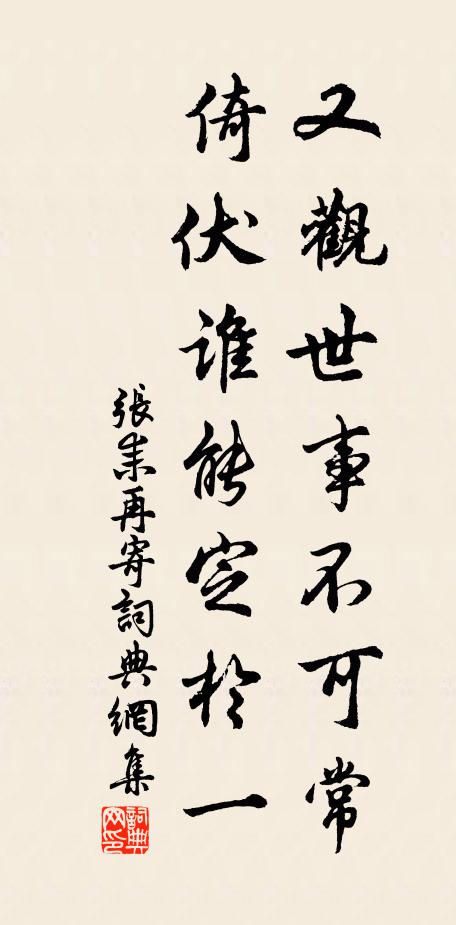 又觀世事不可常
倚伏誰能定於一
張耒再寄詞典網集
詞典網印